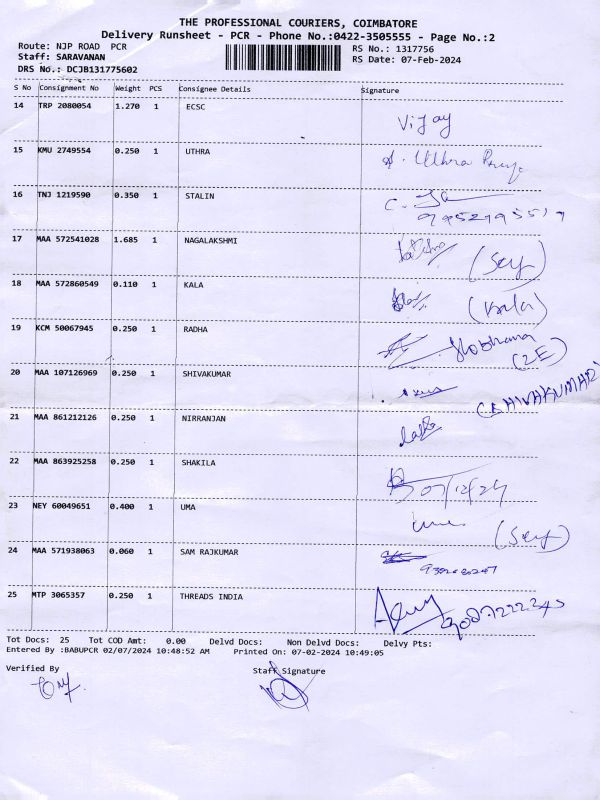 THE PROFESSIONAL COURIERS, COIMBATORE
Delivery Runsheet - PCR - Phone No.:0422-3505555 - Page No.:2
Route: NJP ROAD PCR RS No.: 1317756
Staff: SARAVANAN RS Date: 07-Feb-2024
DRS No.: DCJB131775602
S No Consignment No Weight PCS Consignee Details Signature
14 TRP 2080054 1.270 1 ECSC Vijay
15 KMU 2749554 0.250 1 UTHRA A. Uthra
16 TNJ 1219590 0.350 1 STALIN C.
17 MAA 572541028 1.685 1 NAGALAKSHMI (Sey)
18 MAA 572860549 0.110 1 KALA (Kala)
19 KCM 50067945 0.250 1 RADHA Shobhana
(2E)
20 MAA 107126969 0.250 1 SHIVAKUMAR (SHIVAKUMAR)
21 MAA 861212126 0.250 1 NIRRANJAN
22 MAA 863925258 0.250 1 SHAKILA 07/12/24
23 NEY 60049651 0.400 1 UMA uma (Sey)
24 MAA 571938063 0.060 1 SAM RAJKUMAR
25 MTP 3065357 0.250 1 THREADS INDIA
Tot Docs: 25 Tot COD Amt: 0.00 Delvd Docs: Non Delvd Docs: Delvy Pts:
Entered By :BABUPCR 02/07/2024 10:48:52 AM Printed On: 07-02-2024 10:49:05
Verified By Staff Signature